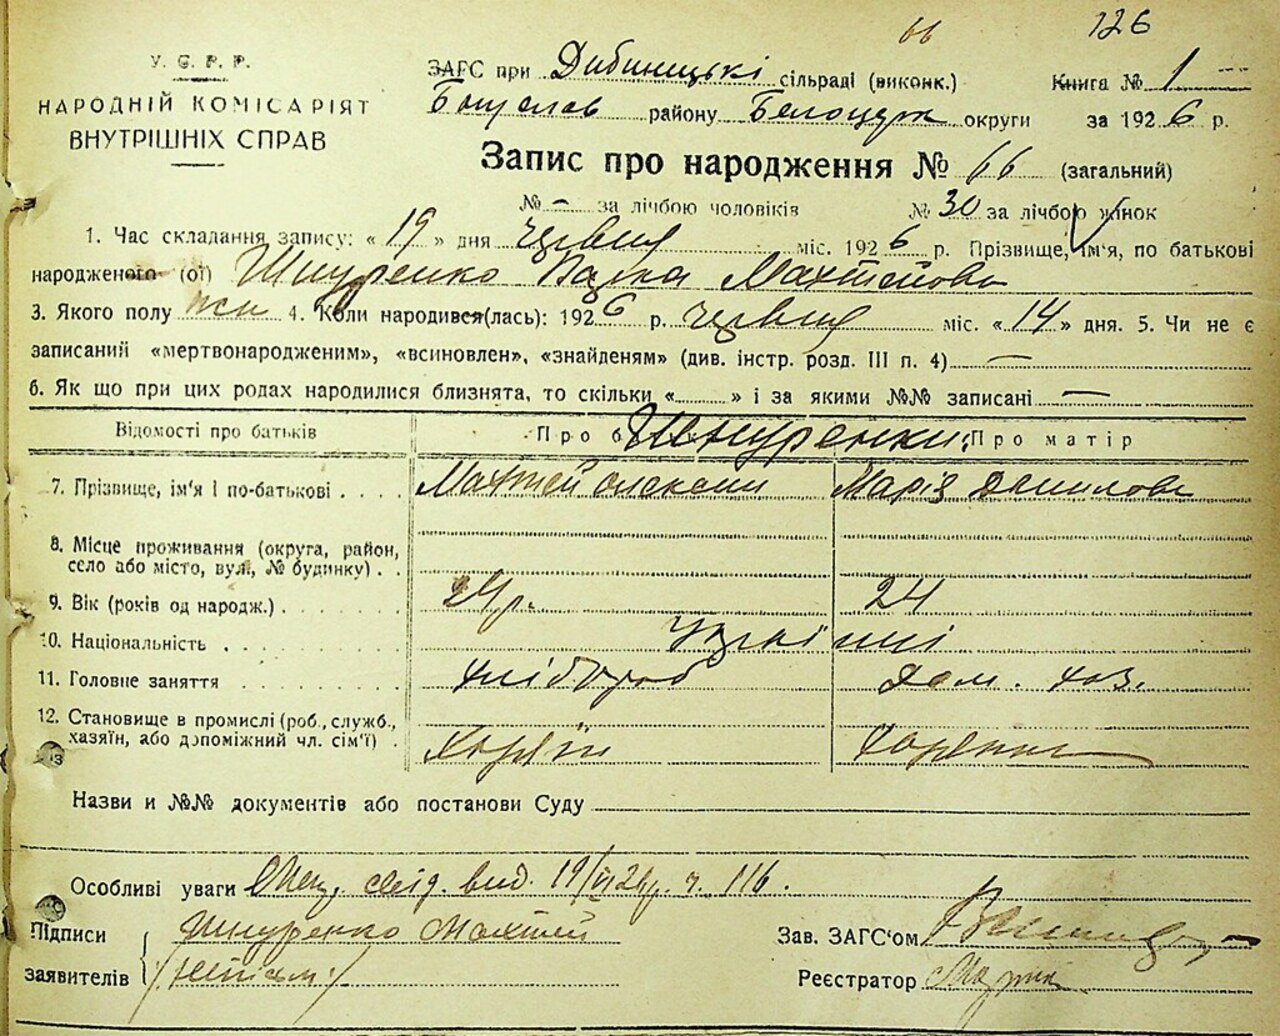 66 126
У. С. Р. Р.
НАРОДНІЙ КОМІСАРІЯТ
ВНУТРІШНІХ СПРАВ
ЗАГС при Дибиницькі сільраді (виконк.) Книга № 1
Богуслав району Белоцерк округи за 1926 р.
Запис про народження № 66 (загальний)
№ – за лічбою чоловіків № 30 за лічбою жінок
1. Час складання запису: « 19 » дня червня міс. 1926 р. Прізвище, ім‘я, по батькові
народженого (ої) Шнуренко Махтейова
3. Якого полу жін 4. Коли народився(лась): 1926 р. червня міс. « 14 » дня. 5. Чи не є
записаний «мертвонародженим», «всиновлен», «знайденям» (див. інстр. розд. III п. 4) —
6. Як що при цих родах народилися близнята, то скільки « » і за якими №№ записані —
Відомості про батьків Про б Шнуренки Про матір
7. Прізвище, ім‘я і по-батькові Махтей Марія Данилова
8. Місце проживання (округа, район,
село або місто, вул., № будинку)
9. Вік (років од народж.) 24 р. 24
10. Національність українці
11. Головне заняття хлібороб дом. хоз.
12. Становище в промислі (роб., служб.,
хазяїн, або допоміжний чл. сім‘ї)
Назви и №№ документів або постанови Суду
Особливі уваги вид. 19/VI 26р. ч. 116.
Підписи Шнуренко Махтей
заявителів
Зав. ЗАГС‘ом
Реєстратор